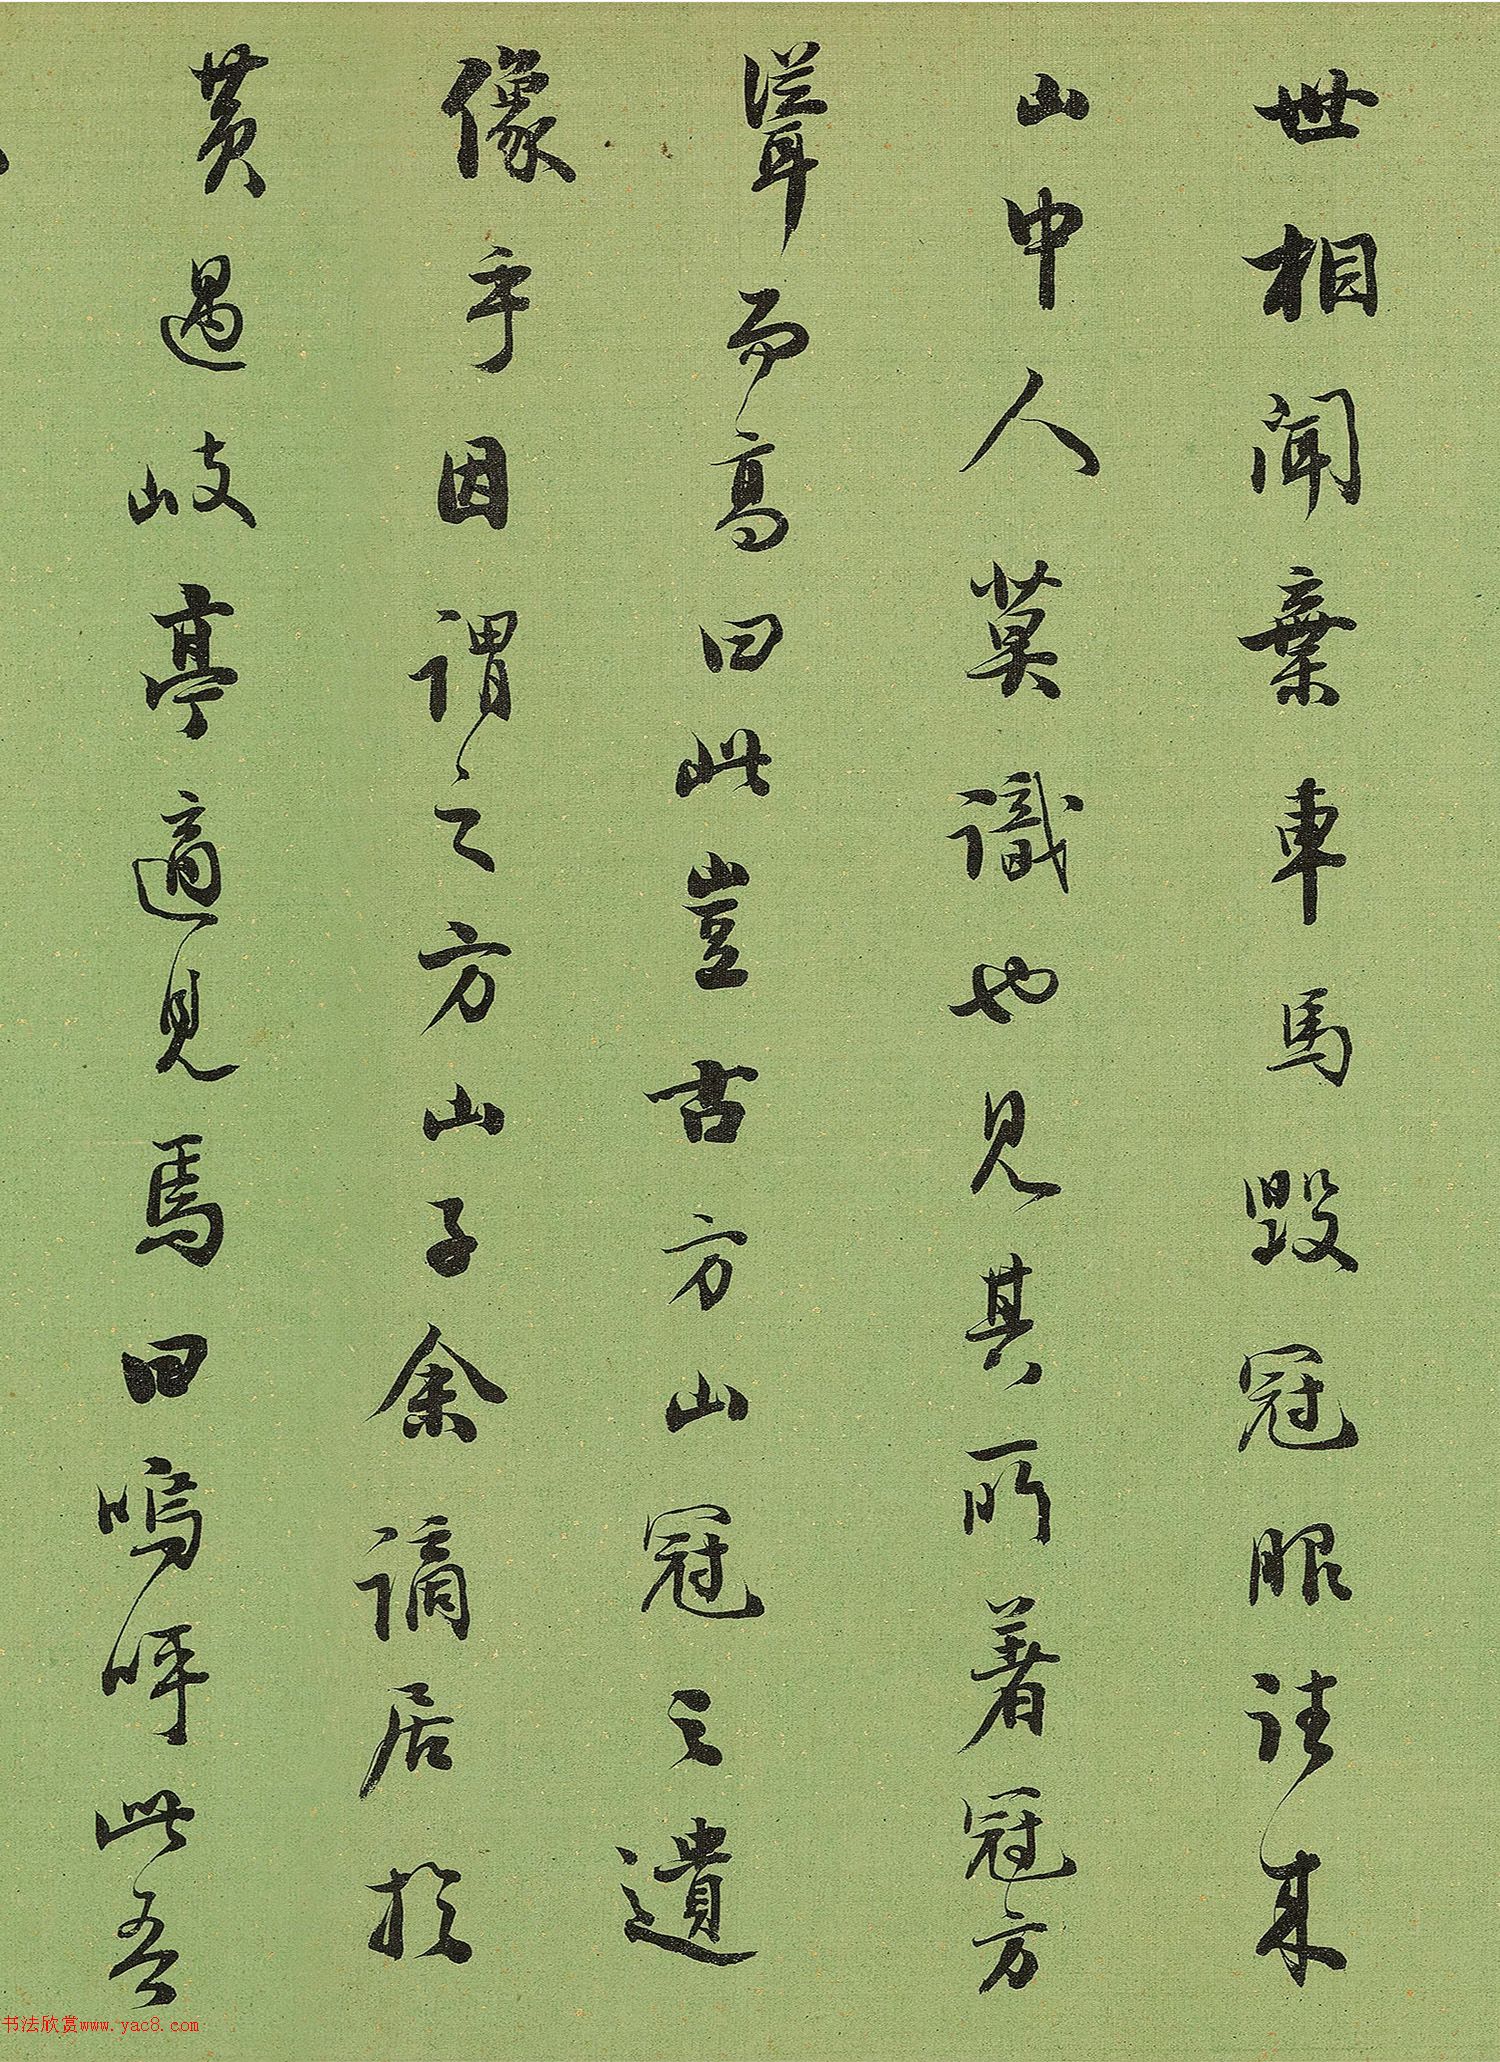 世相聞棄車馬毀冠服往來
山中人莫識也見其所著冠方
聳而高曰此豈古方山冠之遺
像乎因謂之方山子余謫居於
黄過岐亭適見焉曰嗚呼此吾
书法欣赏www.yac8.com